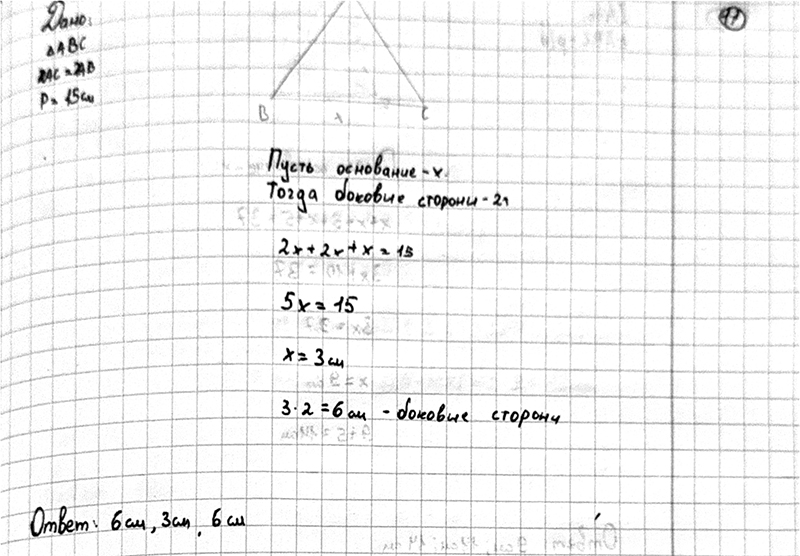 Дано:
△ABC
P = 15см
17
B
x
C
Пусть основание - x
Тогда боковые сторони - 2x
2x + 2x + x = 15
5x = 15
x = 3 см
3 · 2 = 6 см - боковые сторони
Ответ: 6 см, 3 см, 6 см